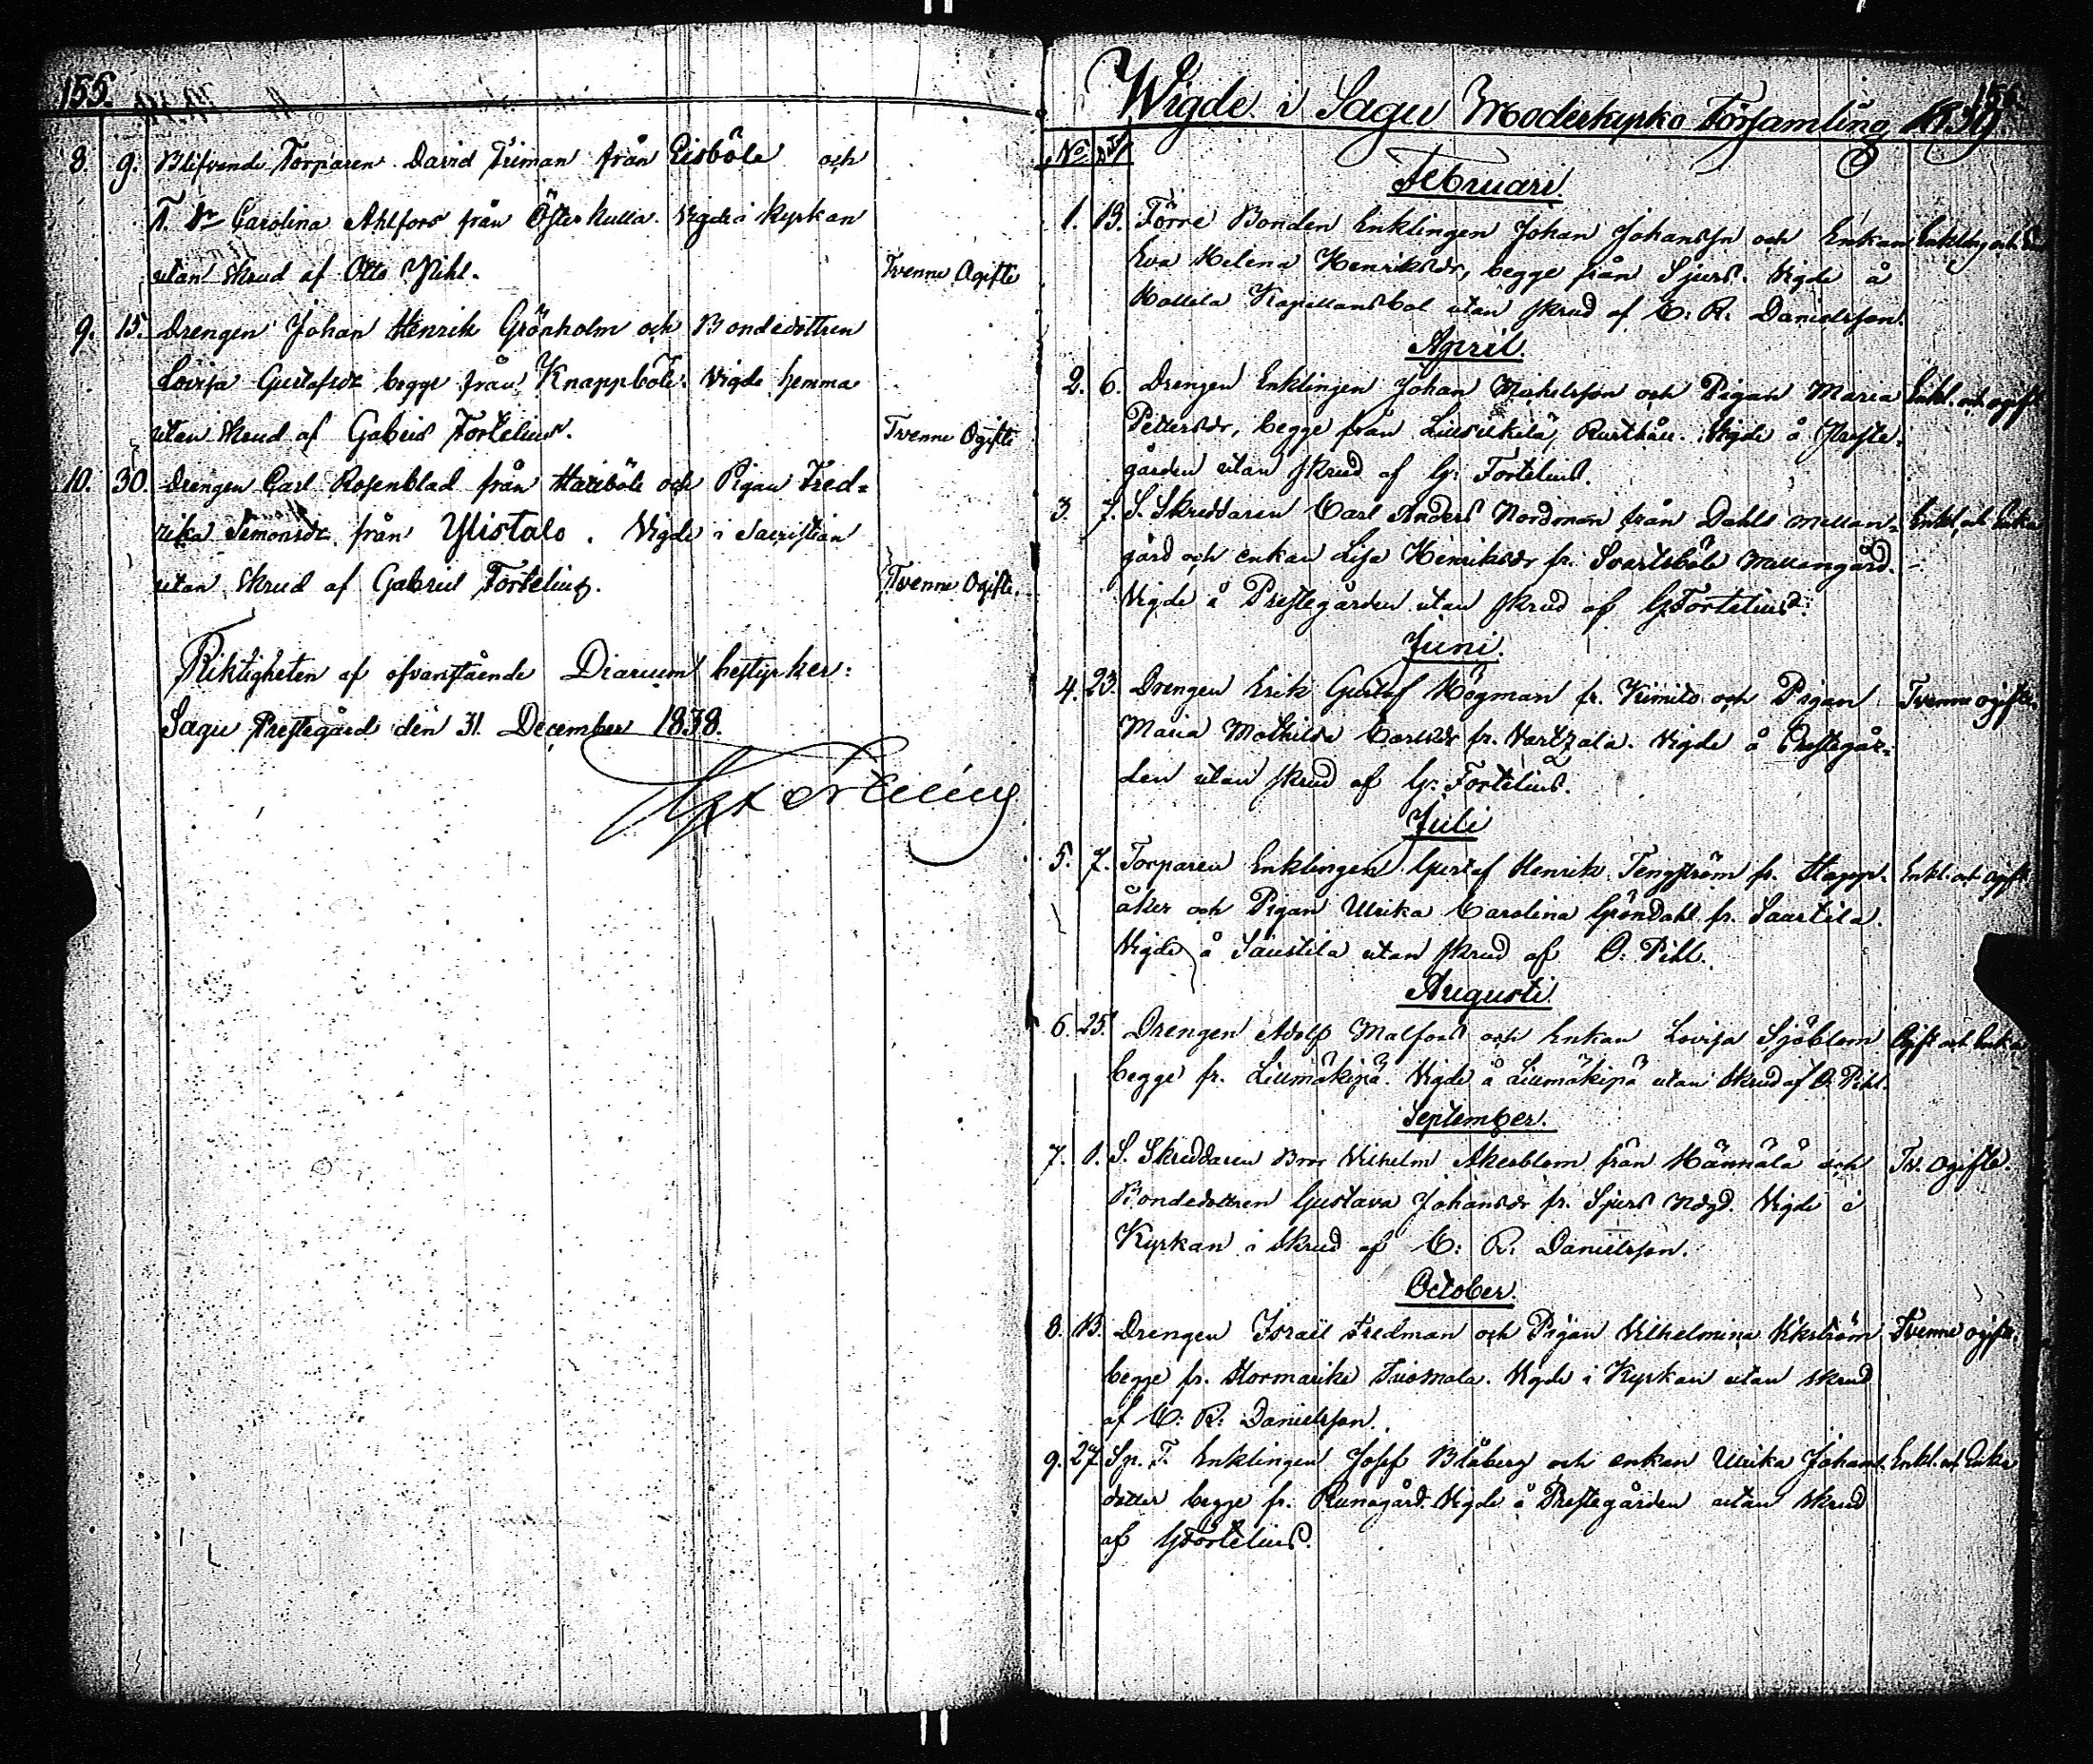 155.
8. 9. Blifvende Torparen David Friman från Eisböle och
T. Dr Carolina Ahlfors från Österkulla. Vigde i Kyrkan
utan Skrud af Otto Pihl. Tvenne Ogifte
9. 15. Drengen Johan Henrik Grönholm och Bondedottren
Lovisa Gustafsdr begge från Knappböle. Vigde hemma
utan Skrud af Gabriel Fortelius. Tvenne Ogifte
10. 30. Drengen Carl Rosenblad från Hareböle och Pigan Fred-
rika Simonsdr från Ylistalo. Vigde i Sacristian
utan Skrud af Gabriel Fortelius. Tvenne Ogifte.
Riktigheten af ofvanstående Diarium bestyrker:
Sagu Prestegård den 31. December 1838.
156.
Wigde i Sagu Moderkyrko Församling 1839.
No
Februari
1. 19. Förre Bonden Enklingen Johan Johansson och Enkan Enkling och
Eva Helena Henriksdr, begge från Sjurs. Vigde å
Kapellansbol utan skrud af C: R: Danielsson.
April.
2. 6. Drengen Enklingen Johan Michelsson och Pigan Maria Enkl. och ogift
Pettersdr, begge från Rusthåll. Vigde å Preste-
gården utan skrud af G: Fortelius.
3. 7. S. Skreddaren Carl Anders Nordman från Dahls mellan- Enkl. och Enka
gård och enkan Lisa Henriksdr fr. Svartsböle mellangård.
Vigde å Prestegården utan skrud af G Fortelius.
Juni.
4. 23. Drengen Erik Gustaf Högman fr. Kimito och Pigan Tvenne ogifte.
Maria Mathilda Carlsdr fr. Vartsala. Vigde å Prestegår-
den utan skrud af G: Fortelius.
Juli
5. 7. Torparen Enklingen Gustaf Henrik Tengström fr. Happ- Enkl. och ogift
åker och Pigan Ulrika Carolina Gröndahl fr. Saustila.
Vigde å Saustila utan skrud af O: Pihl.
Augusti.
6. 25. Drengen Adolf Malfors och Enkan Lovisa Sjöblom Ogift och Enka
begge fr. Lillmäkipä. Vigde å Lillmäkipä utan skrud af O: Pihl.
September.
7. 1. S. Skreddaren Bror Vilhelm Åkerblom från Hännälä och Tv. ogifte.
Bondedottren Gustava Johansdr fr. Sjurs Nedgd. Vigde i
Kyrkan i skrud af C: R: Danielsson.
October.
8. 13. Drengen Israël Fredman och Pigan Vilhelmina Vikström Tvenne ogifte.
begge fr. Vigde i Kyrkan utan skrud
af C: R: Danielsson.
9. 27. Sp. T. Enklingen Josef Blåberg och enkan Ulrika Johans- Enkl. och Enka
dotter begge fr. Runagård. Vigde å Prestegården utan skrud
af G Fortelius.